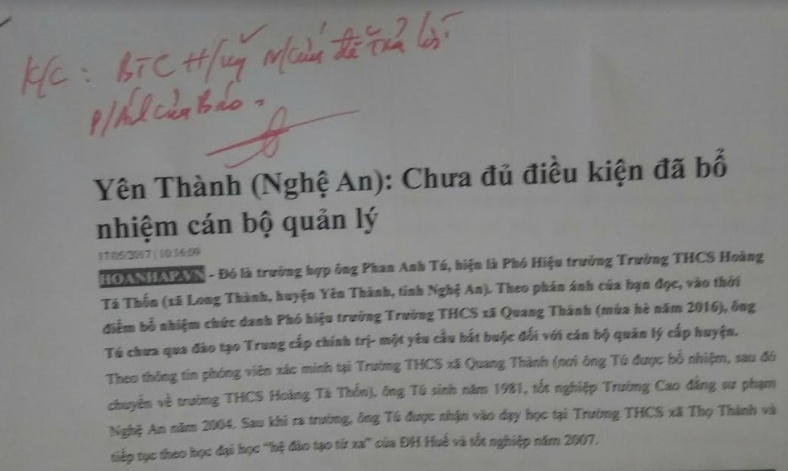 K/C: BTC H/uỷ N/cứu để trả lời
P/Ánh của Báo.
Yên Thành (Nghệ An): Chưa đủ điều kiện đã bổ
nhiệm cán bộ quản lý
17/05/2017 | 10:16:09
HOANHAP.VN - Đó là trường hợp ông Phan Anh Tú, hiện là Phó Hiệu trưởng Trường THCS Hoàng
Tá Thốn (xã Long Thành, huyện Yên Thành, tỉnh Nghệ An). Theo phản ánh của bạn đọc, vào thời
điểm bổ nhiệm chức danh Phó hiệu trưởng Trường THCS xã Quang Thành (mùa hè năm 2016), ông
Tú chưa qua đào tạo Trung cấp chính trị- một yêu cầu bắt buộc đối với cán bộ quản lý cấp huyện.
Theo thông tin phóng viên xác minh tại Trường THCS xã Quang Thành (nơi ông Tú được bổ nhiệm, sau đó
chuyển về trường THCS Hoàng Tá Thốn), ông Tú sinh năm 1981, tốt nghiệp Trường Cao đẳng sư phạm
Nghệ An năm 2004. Sau khi ra trường, ông Tú được nhận vào dạy học tại Trường THCS xã Thọ Thành và
tiếp tục theo học đại học "hệ đào tạo từ xa" của ĐH Huế và tốt nghiệp năm 2007.